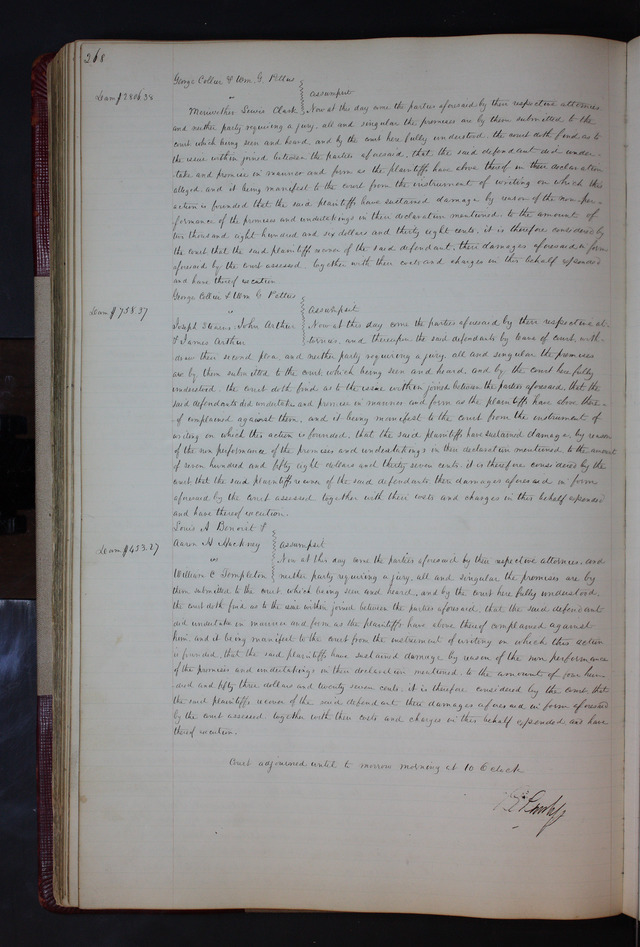 268
George Collier & Wm G. Pettus
" assumpsit
Dam $
Meriwether Lewis Clark Now at this day come the parties aforesaid by their respective attornies
and neither party requiring a jury, all and singular the premises are by them submitted to the
court which being seen and heard, and by the court here fully understood, the court doth find as to
the issue within joined between the parties aforesaid, that the said defendant did under-
take and promise in manner and form as the plaintiffs have above thereof in their declaration
alleged, and it being manifest to the court from the instrument of writing on which this
action is founded that the said plaintiffs have sustained damage by reason of the non-per-
formance of the promises and undertakings in their declaration mentioned to the amount of
thousand eight hundred and six dollars and thirty eight cents, it is therefore considered by
the court that the said plaintiffs recover of the said defendant, their damages aforesaid in form
aforesaid by the court assessed together with their costs and charges in this behalf expended
and have thereof execution
George Collier & Wm G Pettus
Dam $ 758.37
" assumpsit
Joseph John Arthur Now at this day come the parties aforesaid by their respective at-
& James Arthur tornies, and thereupon the said defendants by leave of court, with-
draw their second plea, and neither party requiring a jury, all and singular the premises
are by them submitted to the court which being seen and heard, and by the court here fully
understood, the court doth find as to the issue within joined between the parties aforesaid, that the
said defendants did undertake and promise in manner and form as the plaintiffs have above there-
of complained against them, and it being manifest to the court from the instrument of
writing on which this action is founded, that the said plaintiffs have sustained damage, by reason
of the non performance of the promises and undertakings in their declaration mentioned to the amount
of seven hundred and fifty eight dollars and thirty seven cents, it is therefore considered by the
court that the said plaintiffs recover of the said defendants their damages aforesaid in form
aforesaid by the court assessed together with their costs and charges in this behalf expended
and have thereof execution.
Louis A Benoist &
Dam $ 453.27
Aaron H Hackney assumpsit
" Now at this day come the parties aforesaid by their respective attornies, and
William C Templeton neither party requiring a jury, all and singular the premises are by
them submitted to the court which being seen and heard, and by the court here fully understood,
the court doth find as to the issue within joined between the parties aforesaid, that the said defendant
did undertake in manner and form as the plaintiffs have above thereof complained against
him and it being manifest to the court from the instrument of writing on which this action
is founded, that the said plaintiffs have sustained damage by reason of the non performance
of the promises and undertakings in their declaration mentioned to the amount of four hun-
dred and fifty three dollars and twenty seven cents, it is therefore considered by the court that
the said plaintiffs recover of the said defendant their damages aforesaid in form aforesaid
by the court assessed together with their costs and charges in this behalf expended and have
thereof execution.
Court adjourned until to morrow morning at 10 O'clock